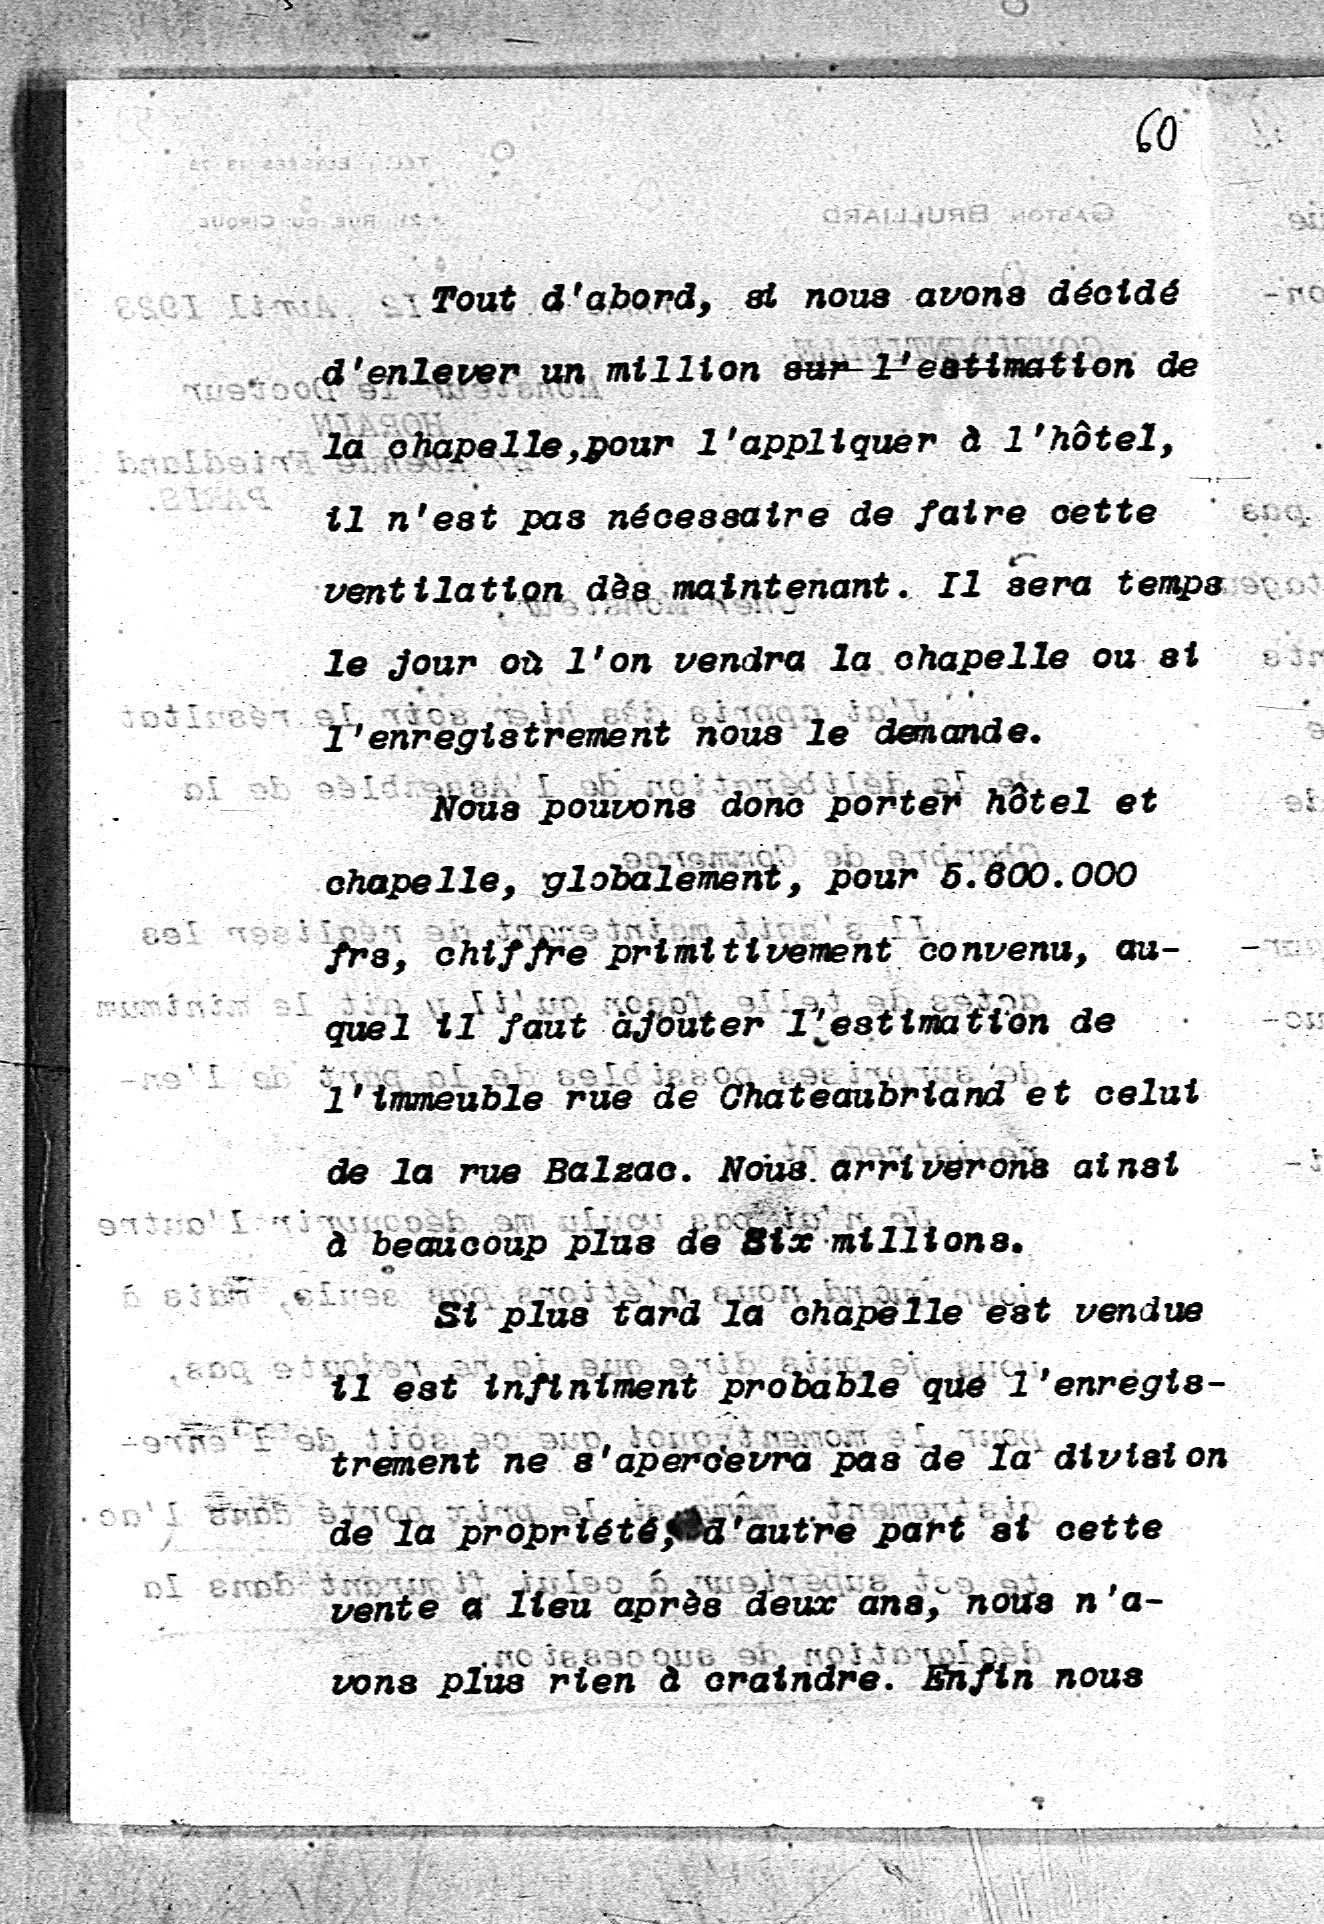 60
Tout d'abord, si nous avons décidé
d'enlever un million sur l'estimation de
la chapelle, pour l'appliquer à l'hôtel,
il n'est pas nécessaire de faire cette
ventilation dès maintenant. Il sera temps
le jour où l'on vendra la chapelle ou si
l'enregistrement nous le demande.
Nous pouvons donc porter hôtel et
chapelle, globalement, pour 5.600.000
frs, chiffre primitivement convenu, au-
quel il faut ajouter l'estimation de
l'immeuble rue de Chateaubriand et celui
de la rue Balzac. Nous arriverons ainsi
à beaucoup plus de Six millions.
Si plus tard la chapelle est vendue
il est infiniment probable que l'enregis-
trement ne s'apercevra pas de la division
de la propriété, d'autre part si cette
vente a lieu après deux ans, nous n'a-
vons plus rien à craindre. Enfin nous